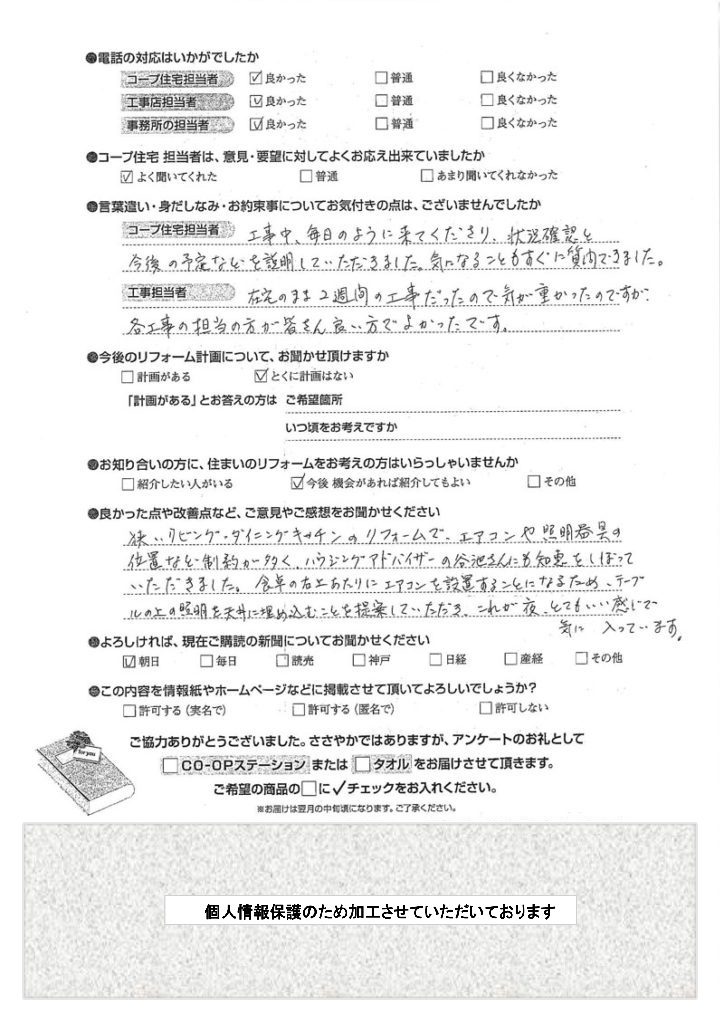 ●電話の対応はいかがでしたか
コープ住宅担当者 ☑良かった □普通 □良くなかった
工事店担当者 ☑良かった □普通 □良くなかった
事務所の担当者 ☑良かった □普通 □良くなかった
●コープ住宅 担当者は、意見・要望に対してよくお応え出来ていましたか
☑よく聞いてくれた □普通 □あまり聞いてくれなかった
●言葉遣い・身だしなみ・お約束事についてお気付きの点は、ございませんでしたか
コープ住宅担当者 工事中、毎日のように来てくださり、状況確認と
今後の予定などを説明していただきました。気になることもすぐに質問できました。
工事担当者 在宅のまま2週間の工事だったので気が重かったのですが、
各工事の担当の方が皆さん良い方でよかったです。
●今後のリフォーム計画について、お聞かせ頂けますか
□計画がある ☑とくに計画はない
「計画がある」とお答えの方は ご希望箇所
いつ頃をお考えですか
●お知り合いの方に、住まいのリフォームをお考えの方はいらっしゃいませんか
□紹介したい人がいる ☑今後 機会があれば紹介してもよい □その他
●良かった点や改善点など、ご意見やご感想をお聞かせください
狭いリビング・ダイニングキッチンのリフォームで、エアコンや照明器具の
位置など制約が多く、ハウジングアドバイザーの谷池さんにも知恵をしぼって
いただきました。食卓の右上あたりにエアコンを設置することになるため、テーブ
ルの上の照明を天井に埋め込むことを提案していただき、これが夜、とてもいい感じで
気に入っています。
●よろしければ、現在ご購読の新聞についてお聞かせください
☑朝日 □毎日 □読売 □神戸 □日経 □産経 □その他
●この内容を情報紙やホームページなどに掲載させて頂いてよろしいでしょうか?
□許可する（実名で） □許可する（匿名で） □許可しない
for you
ご協力ありがとうございました。ささやかではありますが、アンケートのお礼として
□CO-OPステーション または □タオル をお届けさせて頂きます。
ご希望の商品の□に✓チェックをお入れください。
※お届けは翌月の中旬頃になります。ご了承ください。
個人情報保護のため加工させていただいております